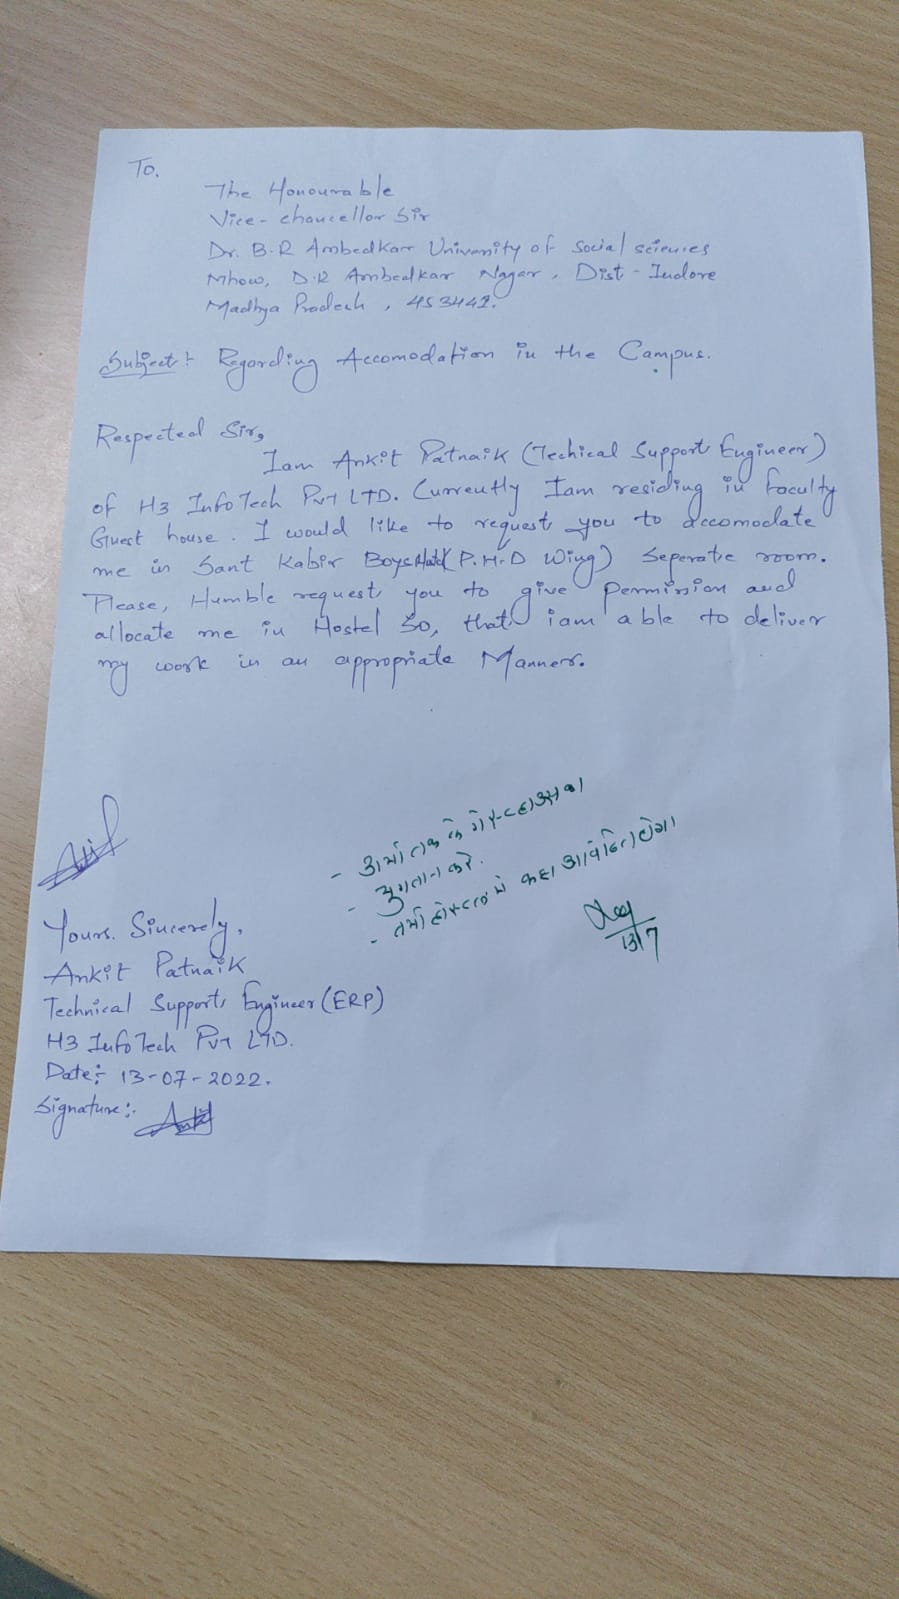 To,
The Honourable
Vice-chancellor Sir
Dr. B.R Ambedkar University of Social sciences
Mhow, D.R Ambedkar Nagar, Dist - Indore
Madhya Pradesh, 453441.
Subject:- Regarding Accomodation in the Campus.
Respected Sir,
Iam Ankit Patnaik (Techical Support Engineer)
of H3 InfoTech Pvt LTD. Currently Iam residing in Faculty
Guest house. I would like to request you to accomodate
me in Sant Kabir Boys Hostel (P.H.D Wing) Seperate room.
Please, Humble request you to give permission and
allocate me in Hostel So, that iam able to deliver
my work in an appropriate Manner.
- अभी तक के गेस्ट हाउस का
- भुगतान करे.
- तभी होस्टल में कक्ष आवंटित होगा
13/7
Yours. Sincerely,
Ankit Patnaik
Technical Supports Engineer (ERP)
H3 InfoTech Pvt LTD.
Date:- 13-07-2022.
Signature:-